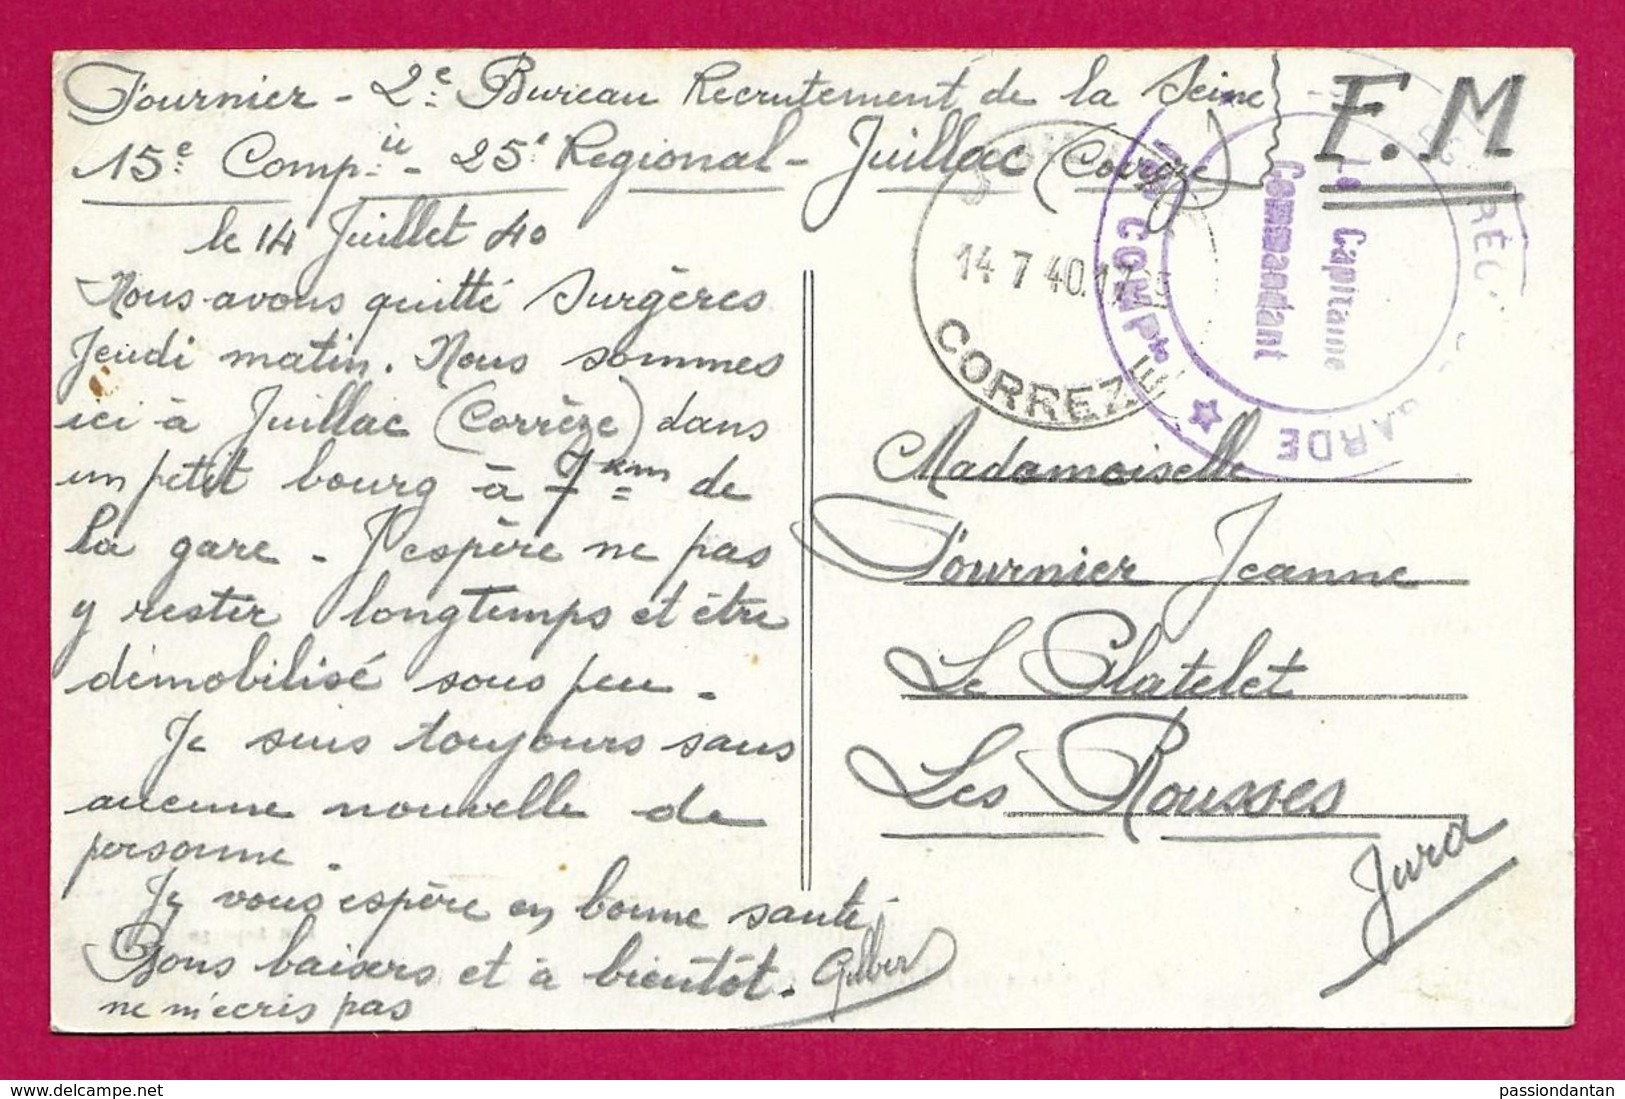 Fournier - 2e Bureau Recrutement de la Seine
15e Compie - 25e Regional - Juillac (Corrèze)
le 14 Juillet 40
Nous avons quitté Surgères
Jeudi matin. Nous sommes
ici à Juillac (Corrèze) dans
un petit bourg à 7 km de
la gare - J'espère ne pas
y rester longtemps et être
démobilisé sous peu -
Je suis toujours sans
aucune nouvelle de
personne -
Je vous espère en bonne santé,
Bons baisers et à bientôt. Gilbert
ne m'écris pas
F.M
14 7 40 17
CORREZE
COMPie
Le Capitaine
Commandant
GARDE
Mademoiselle
Fournier Jeanne
Le Platelet
Les Rousses
Jura
delcampe.net
passiondantan